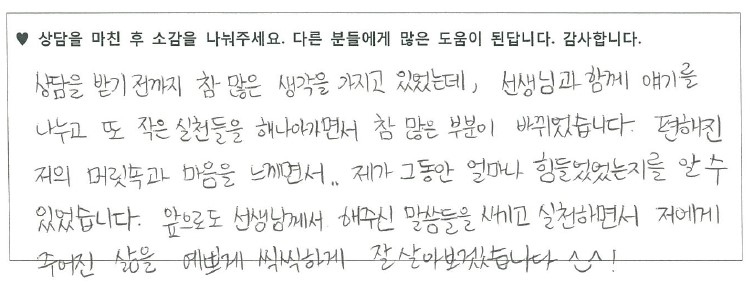 ♥ 상담을 마친 후 소감을 나눠주세요. 다른 분들에게 많은 도움이 된답니다. 감사합니다.
상담을 받기 전까지 참 많은 생각을 가지고 있었는데, 선생님과 함께 얘기를
나누고 또 작은 실천들을 해나아가면서 참 많은 부분이 바뀌었습니다. 편해진
저의 머릿속과 마음을 느끼면서.. 제가 그동안 얼마나 힘들었었는지를 알 수
있었습니다. 앞으로도 선생님께서 해주신 말씀들을 새기고 실천하면서 저에게
주어진 삶을 예쁘게 씩씩하게 잘 살아보겠습니다 ^_^!